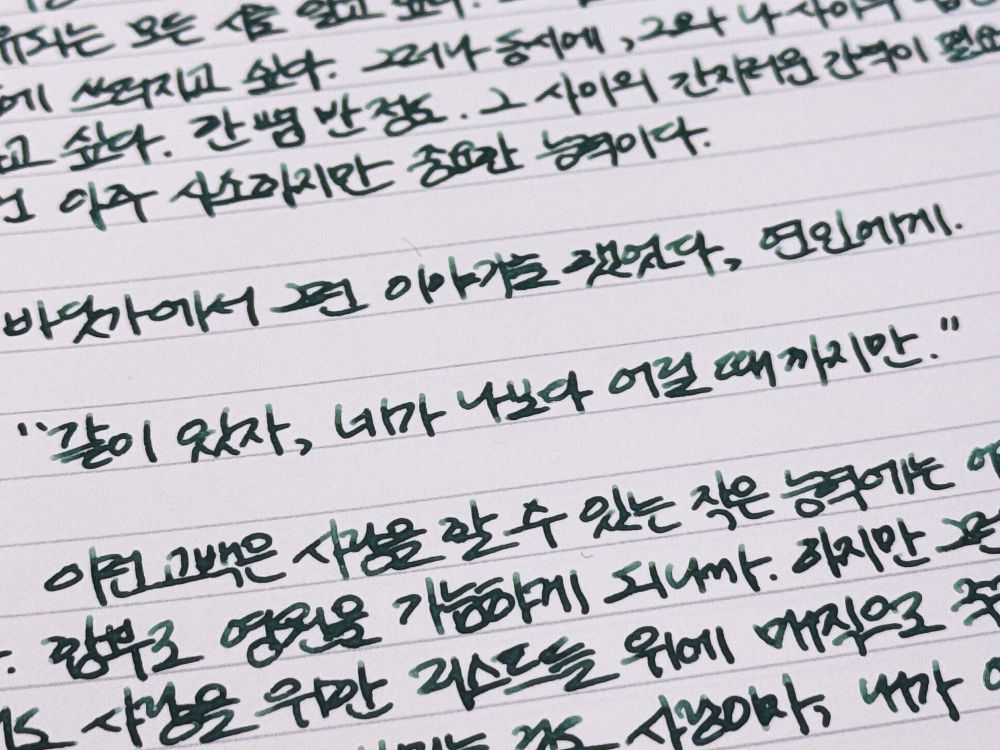 모든 시를 잃고 싶다.
에 쓰러지고 싶다. 그러나 동시에, 그와 나 사이의
고 싶다. 간 뼘 반 정도. 그 사이의 간지러운 간격이 필요
아주 사소하지만 중요한 능력이다.
바닷가에서 그런 이야기를 했었다, 연인에게.
"같이 있자, 네가 나보다 어릴 때까지만."
이런 고백은 사랑을 할 수 있는 작은 능력에는
함부로 영원을 가능하게 되니까. 하지만 그런
사랑을 위한 리스트들 위에 매직으로
사랑이야, 내가